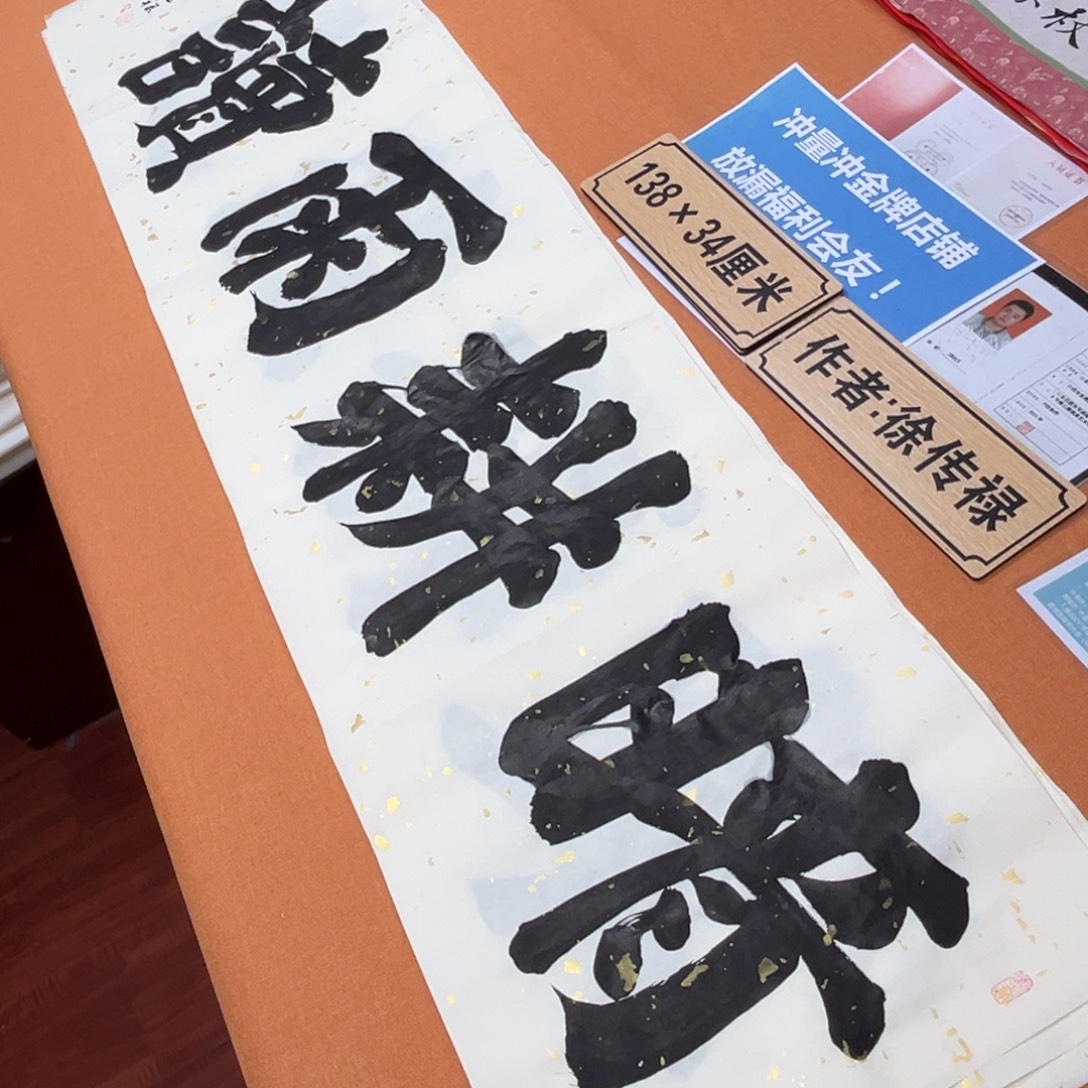 晴耕雨讀
冲量冲金牌店铺
放漏福利会友！
138×34厘米
作者:徐传禄